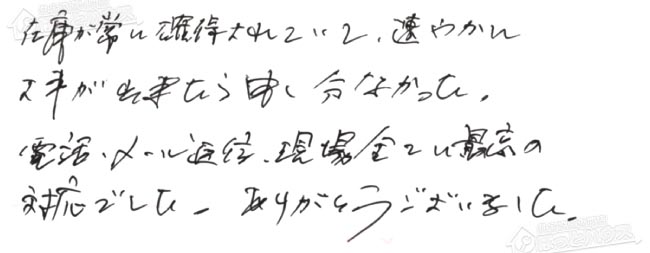 在庫が常に確保されていて、速やかに
工事が出来たら申し分なかった。
電話・メール返信、現場全てに最高の
対応でした。ありがとうございました。